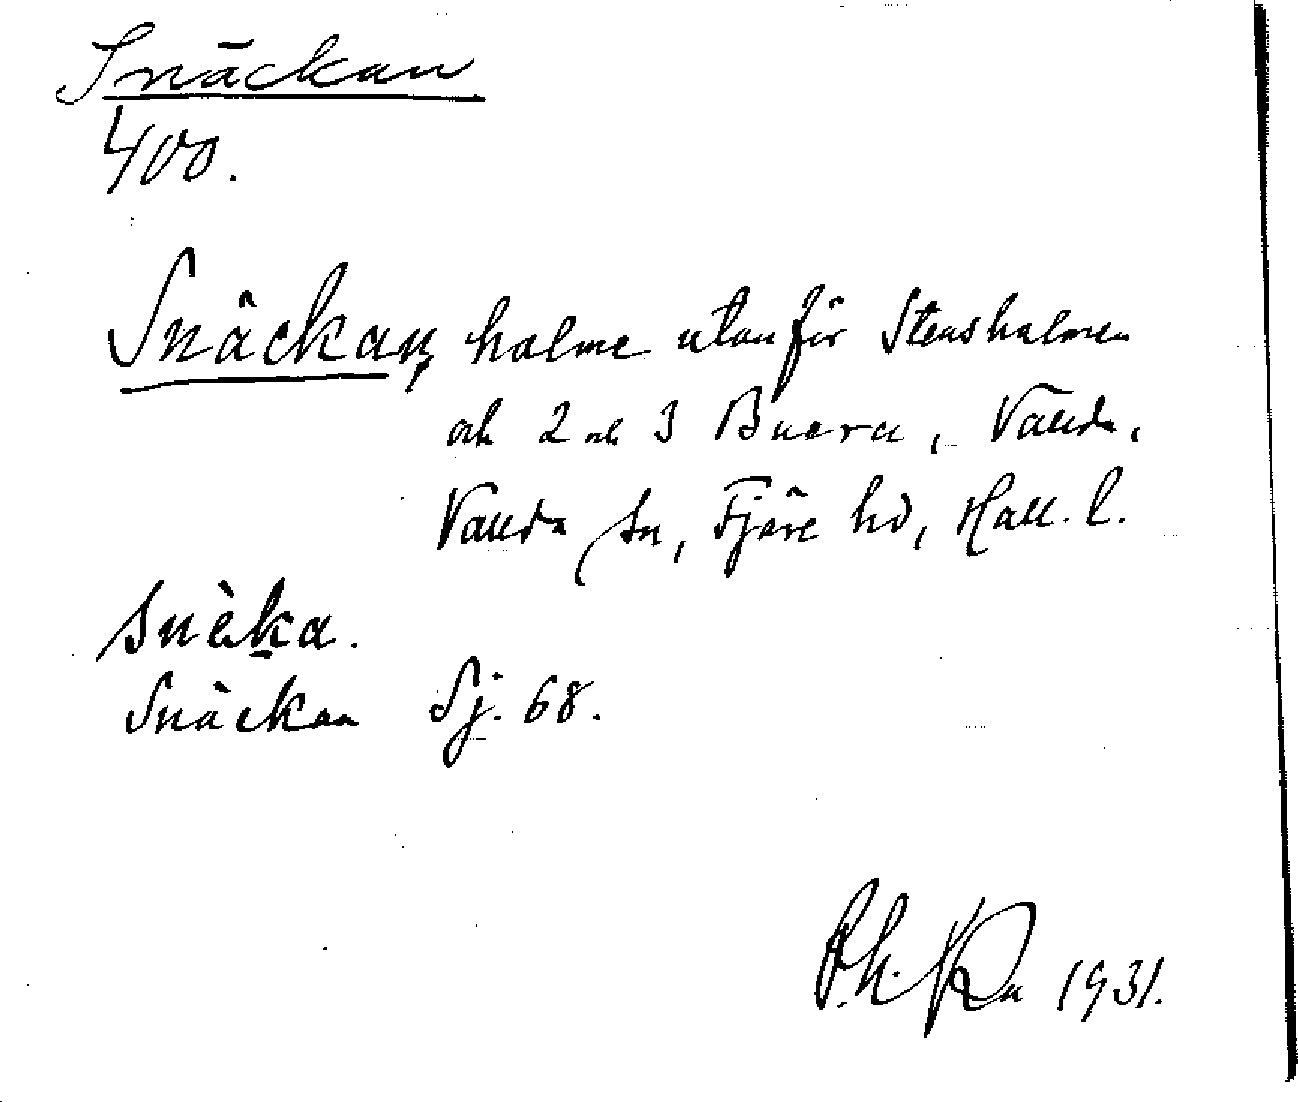 Snäckan
400.
Snäckan, holme utanför Stensholmen
och 2 och 3 Buera, Vallda,
Vallda sn, Fjäre hd, Hall. l.
snèka.
Snäckan Sj. 68.
1931.